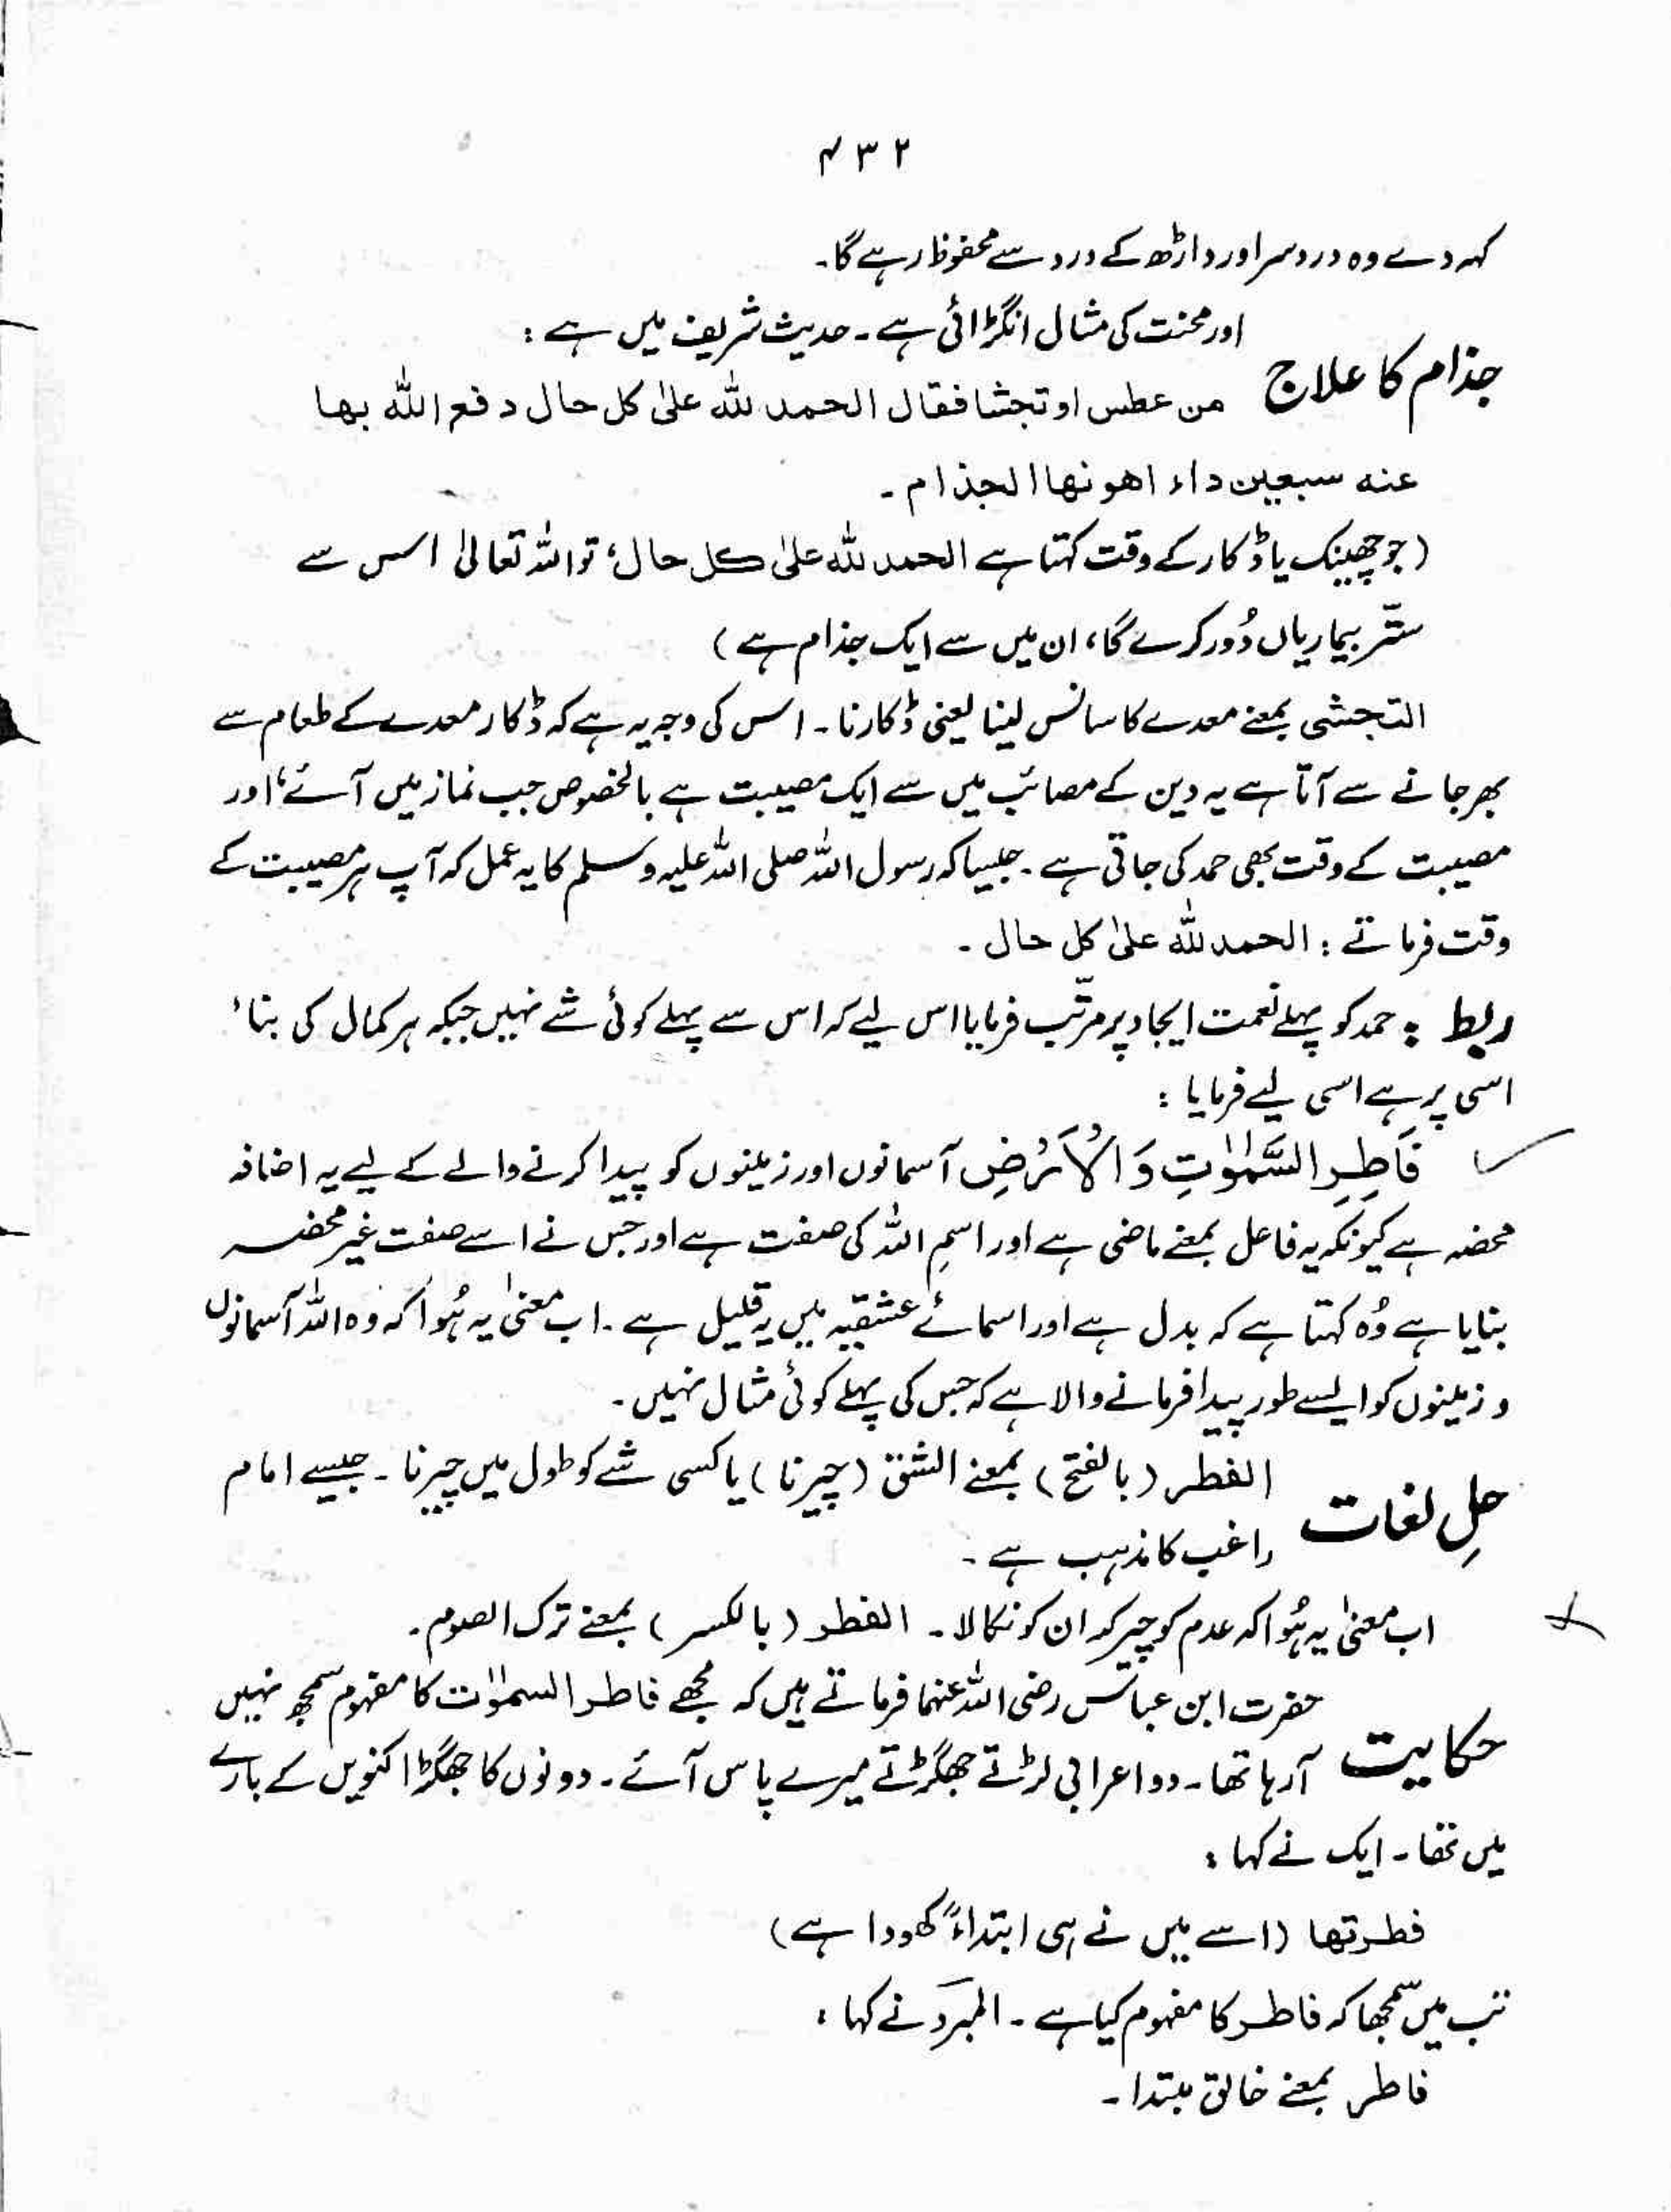 ۴۳۲
کہہ دے وہ دردِ سر اور داڑھ کے درد سے محفوظ رہے گا۔
اور محنت کی مثال انگڑائی ہے۔ حدیث شریف میں ہے :
جذام کا علاج
من عطس او تجشا فقال الحمد للّٰہ علیٰ کل حال دفع اللّٰہ بھا
عنہ سبعین داء اھونھا الجذام۔
(جو چھینک یا ڈکار کے وقت کہتا ہے الحمد للّٰہ علیٰ کل حال، تو اللّٰہ تعالیٰ اس سے
ستّر بیماریاں دُور کرے گا، ان میں سے ایک جذام ہے)
التجشی بمعنے معدے کا سانس لینا یعنی ڈکارنا۔ اس کی وجہ یہ ہے کہ ڈکار معدے کے طعام سے
بھر جانے سے آتا ہے یہ دین کے مصائب میں سے ایک مصیبت ہے بالخصوص جب نماز میں آئے، اور
مصیبت کے وقت بھی حمد کی جاتی ہے۔ جیسا کہ رسول اللّٰہ صلی اللّٰہ علیہ وسلم کا یہ عمل کہ آپ ہر مصیبت کے
وقت فرماتے : الحمد للّٰہ علیٰ کل حال۔
ربط : حمد کو پہلے نعمت ایجاد پر مرتّب فرمایا اس لیے کہ اس سے پہلے کوئی شے نہیں جبکہ ہر کمال کی بناء
اسی پر ہے اسی لیے فرمایا :
فَاطِرِ السَّمٰوٰتِ وَالْاَرْضِ آسمانوں اور زمینوں کو پیدا کرنے والے کے لیے یہ اضافہ
محضہ ہے کیونکہ یہ فاعل بمعنے ماضی ہے اور اسمِ اللّٰہ کی صفت ہے اور جس نے اسے صفت غیر محضہ
بنایا ہے وُہ کہتا ہے کہ بدل ہے اور اسمائے عشقیہ میں یہ قلیل ہے۔ اب معنیٰ یہ ہُوا کہ وہ اللّٰہ آسمانوں
و زمینوں کو ایسے طور پیدا فرمانے والا ہے کہ جس کی پہلے کوئی مثال نہیں۔
الفطر (بالفتح) بمعنے الشق (چیرنا) یا کسی شے کو طول میں چیرنا۔ جیسے امام
حلِ لغات
راغب کا مذہب ہے۔
اب معنیٰ یہ ہُوا کہ عدم کو چیر کر ان کو نکالا۔ الفطر (بالکسر) بمعنے ترک الصوم۔
حضرت ابن عباس رضی اللّٰہ عنہما فرماتے ہیں کہ مجھے فاطر السمٰوٰت کا مفہوم سمجھ نہیں
حکایت
آ رہا تھا۔ دو اعرابی لڑتے جھگڑتے میرے پاس آئے۔ دونوں کا جھگڑا کنویں کے بارے
میں تھا۔ ایک نے کہا :
فطرتھا (اسے میں نے ہی ابتداءً کھودا ہے)
تب میں سمجھا کہ فاطر کا مفہوم کیا ہے۔ المبرّد نے کہا :
فاطر بمعنے خالق مبتدا۔